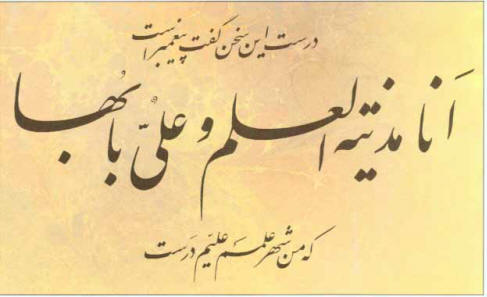 درست این سخن گفت پیغمبر است
اَنا مدینة العلم و علیٌّ بابُها
که من شهر علمم علیّم دَرَست